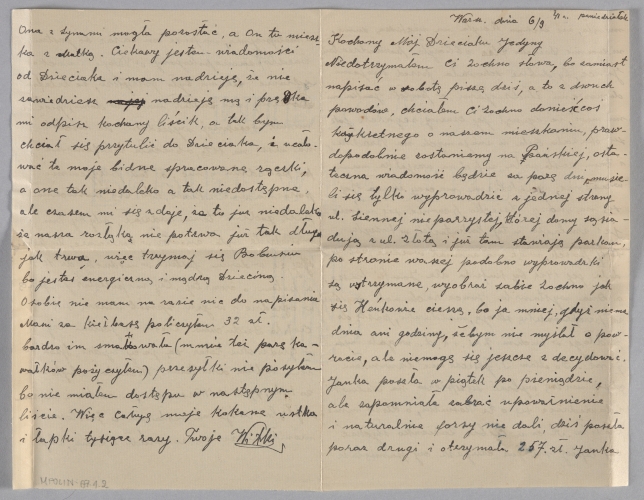 Warsz. dnia 6/9 41 r. poniedziałek
Kochany Mój Dzieciaku Jedyny
Niedotrzymałem Ci Zochno słowa, bo zamiast
napisać w sobotę piszę dziś, a to z dwuch
powodów, chciałem Ci Zochno donieść coś
konkretnego o naszem mieszkaniu, praw-
dopodobnie zostaniemy na Pańskiej, osta-
teczna wiadomość będzie za parę dni, musie
li się tylko wyprowadzić z jednej strony
ul. Siennej nieparzystej, której domy sąsia-
dują z ul. Złotą i już tam stawiają parkan,
po stronie waszej podobno wyprowadzki
są wstrzymane, wyobraź sobie Zochno jak
się Heńkowie cieszą, bo ja mniej, gdyż niema
dnia ani godziny, żebym nie myślał o pow-
rocie, ale niemogę się jeszcze zdecydować.
Janka poszła w piątek po pieniądze,
ale zapomniała zabrać upoważnienie
i naturalnie forsy nie dali, dziś poszła
poraz drugi i otrzymała 257 zł. Janka
Ona z Synami mogła pozostać, a On tu miesz
ka z Matką. Ciekawy jestem wiadomości
od Dzieciaka i mam nadzieję, że nie
zawiedziesz nadzieją mą i prędko
mi odpisz kochany liścik, a tak bym
chciał się przytulić do Dzieciaka, i ucało-
wać te moje bidne spracowane rączki,
a one tak niedaleko a tak niedostępne,
ale czasem mi się zdaje, że to już niedaleko
że nasza rozłąka nie potrwa już tak długo
jak trwa, więc trzymaj się Bobusiu
bo jesteś energiczną i mądrą Dzieciną.
Osobie nie mam na razie nic do napisania
Mani za kiełbasę policzyłem 32 zł.
bardzo im smakowała (mnie też parę ka-
wałków pożyczyłem) przesyłki nie posyłam
bo nie miałem dostępu w następnym
liście. Więc całuję moje kochane ustka
i łapki tysiące razy. Twoje